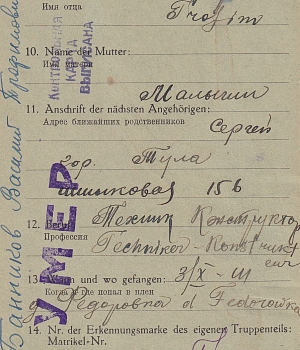 Имя отца
Trofim
10. Name der Mutter:
Имя матери
КОНТРОЛЬНАЯ
КАРТА
ВЫПИСАНА
Малыгин
11. Anschrift der nächsten Angehörigen:
Адрес ближайших родственников
Сергей
гор. Тула
15б
12. Beruf
Профессия
Техник Конструктор
Techniker-Konstrukteur
13. Wann und wo gefangen: 3/X-41
Когда и где попал в плен
д Федоровка d Fedorowka
14. Nr. der Erkennungsmarke des eigenen Truppenteils:
Matrikel-Nr.
УМЕР
Банников Василий Трофимович